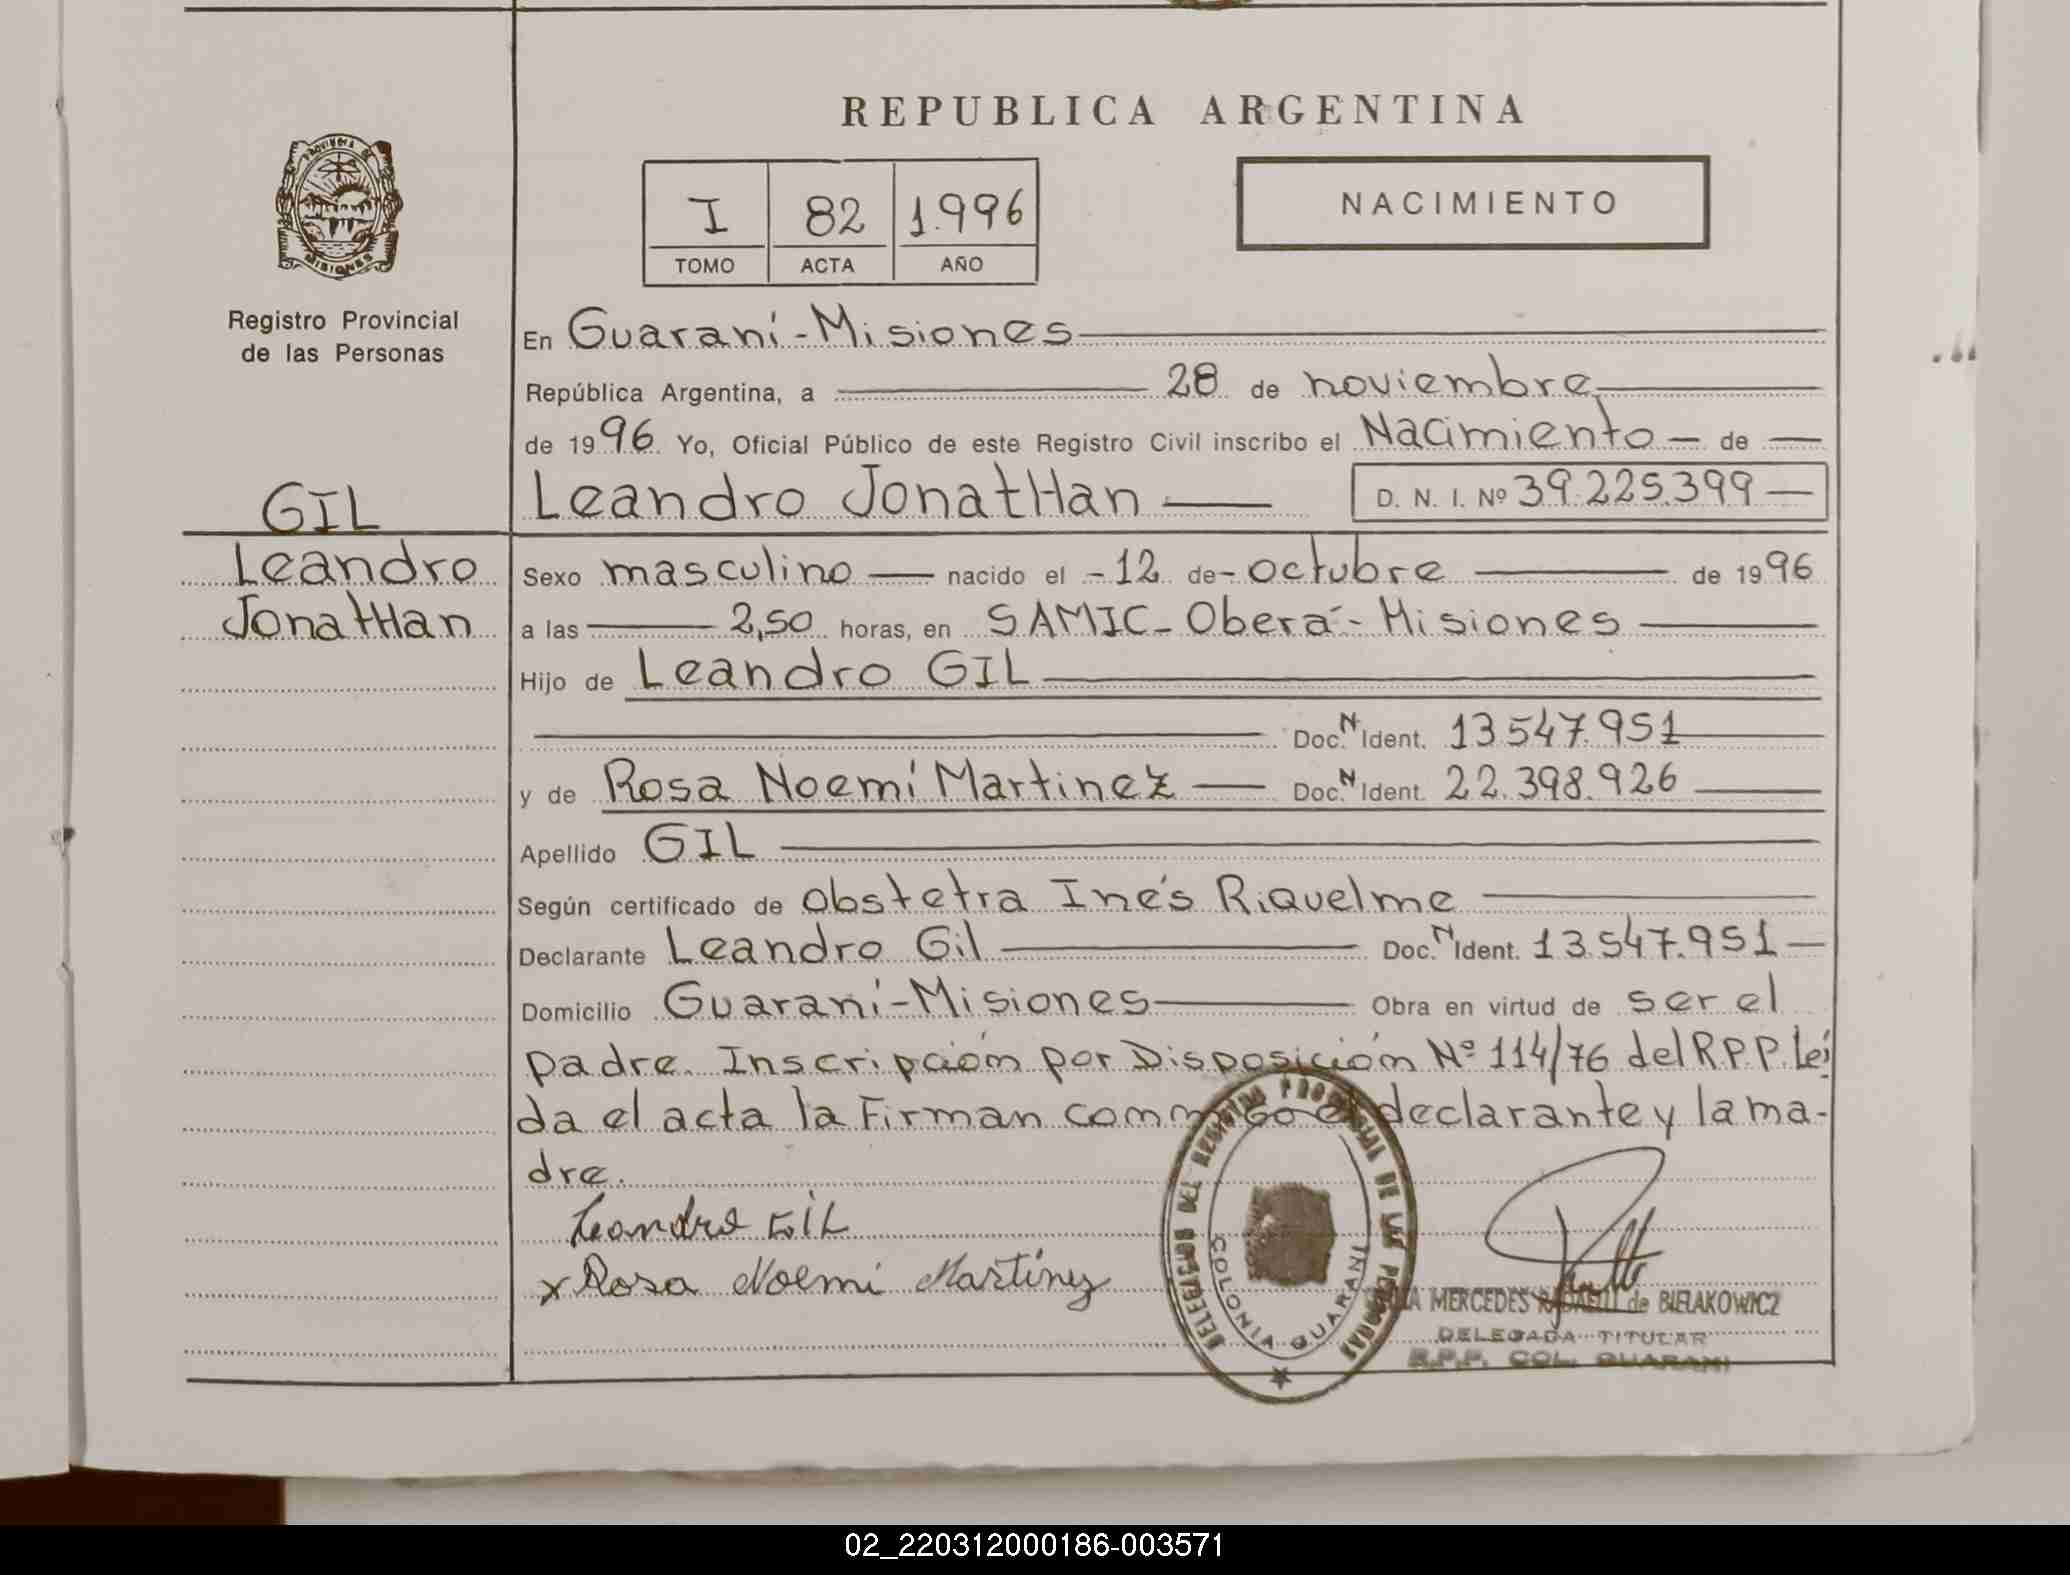 REPUBLICA ARGENTINA
PROVINCIA DE
MISIONES
Registro Provincial
de las Personas
I 82 1.996
TOMO ACTA AÑO
NACIMIENTO
En Guaraní-Misiones
República Argentina, a 28 de noviembre
de 1996 Yo, Oficial Público de este Registro Civil inscribo el Nacimiento de
GIL
Leandro JonatHan D. N. I. Nº 39.225.399
Leandro
Sexo masculino nacido el -12 de- octubre de 1996
JonatHan
a las 2,50 horas, en SAMIC- Oberá- Misiones
Hijo de Leandro GIL
Doc. N Ident. 13.547.951
y de Rosa Noemí Martinez Doc. N Ident. 22.398.926
Apellido GIL
Según certificado de obstetra Inés Riquelme
Declarante Leandro Gil Doc. N Ident. 13.547.951
Domicilio Guaraní-Misiones Obra en virtud de ser el
padre. Inscripción por Disposición Nº 114/76 del R.P.P. Leí
da el acta la Firman conmigo el declarante y la ma-
dre.
Leandro GIL
x Rosa Noemi Martinez
DELEGACION DEL REGISTRO PROVINCIAL DE LAS PERSONAS
COLONIA GUARANI
MERCEDES de BIELAKOWICZ
DELEGADA TITULAR
R.P.P. COL. GUARANI
02_220312000186-003571